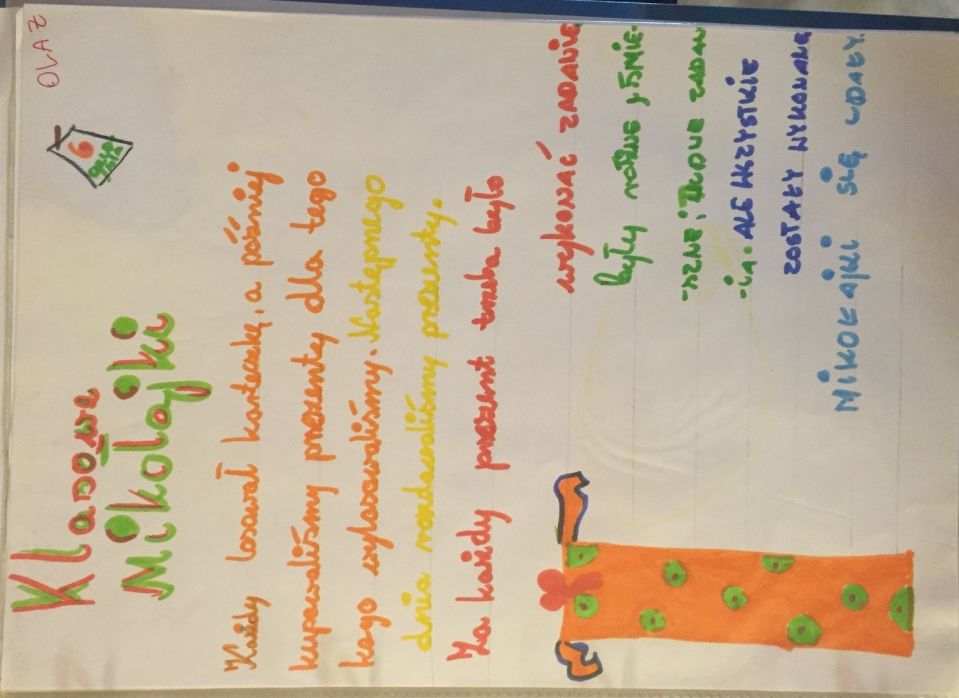 OLA Z
6
Klasowe
Mikołajki
Każdy losował karteczkę, a później
kupowaliśmy prezenty dla tego
kogo wylosowaliśmy. Następnego
dnia rozdawaliśmy prezenty.
Za każdy prezent trzeba było
wykonać ZADANIE
były rożne, ŚMIE-
-SZNE i TRUDNE ZADAN
-ia. ALE WSZYSTKIE
ZOSTAŁY WYKONANE
MikoŁajki SIĘ UDAŁY.